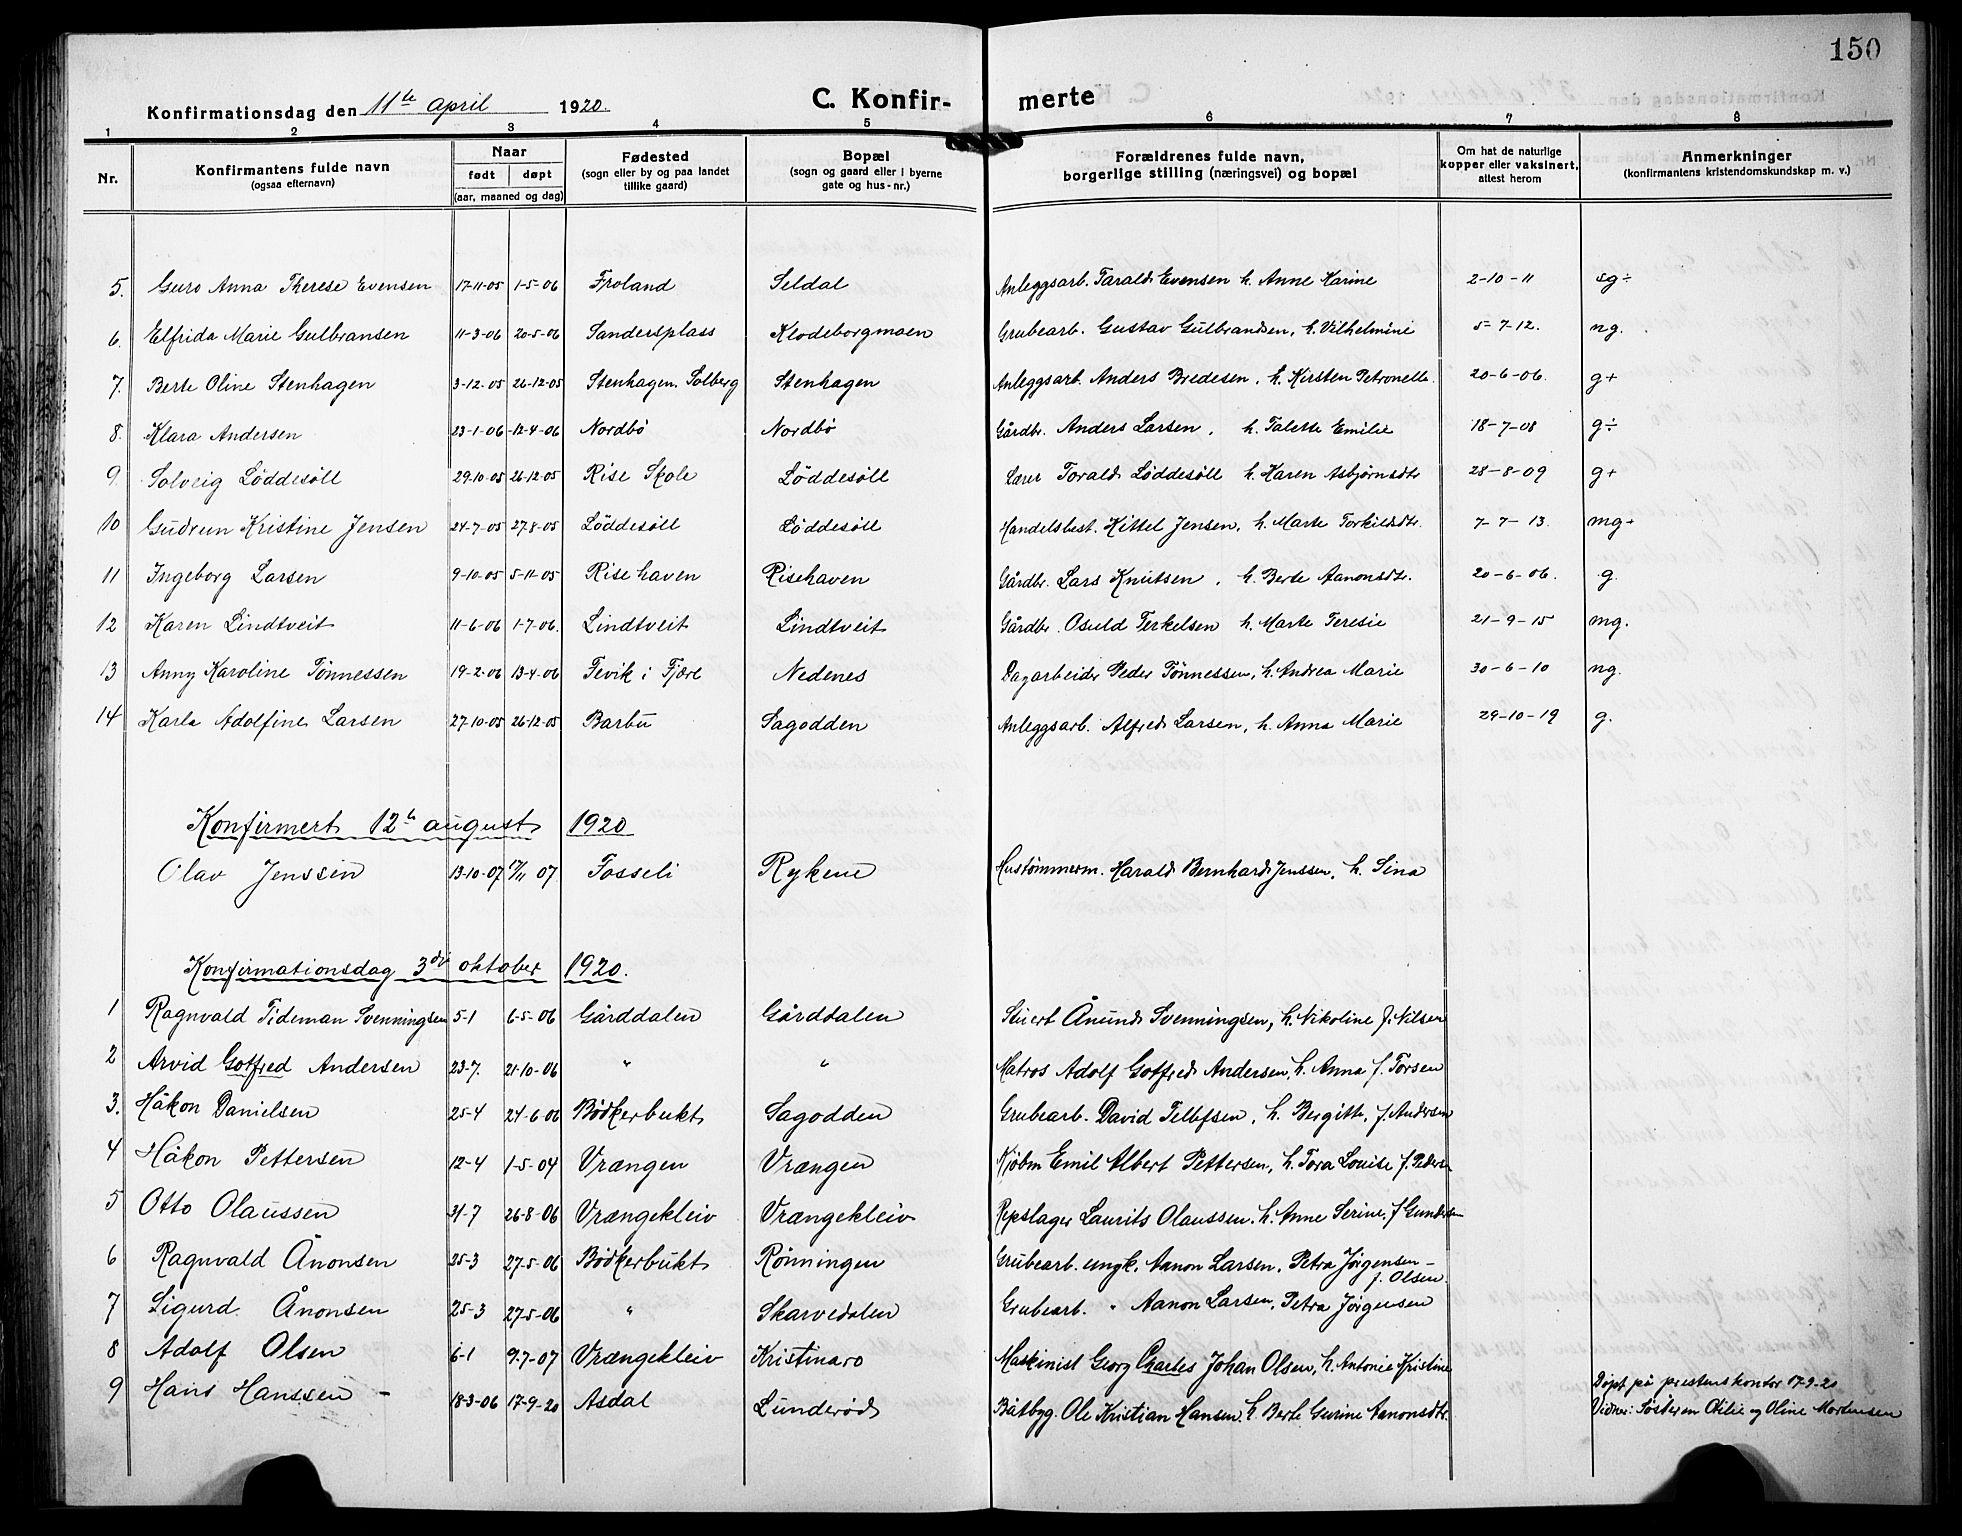 150
Konfirmationsdag den 11te april 1920. C. Konfirmerte
1 2 3 4 5 6 7 8
Nr. | Konfirmantens fulde navn (ogsaa efternavn) | Naar født døpt (aar, maaned og dag) | Fødested (sogn eller by og paa landet tillike gaard) | Bopæl (sogn og gaard eller i byerne gate og hus-nr.) | Forældrenes fulde navn, borgerlige stilling (næringsvei) og bopæl | Om hat de naturlige kopper eller vaksinert, attest herom | Anmerkninger (konfirmantens kristendomskundskap m. v.)
5. Guro Anna Therese Evensen 17-11-05 1-5-06 Froland Seldal Anleggsarb. Tarald Evensen h. Anne Karine 2-10-11 sg÷
6. Elfrida Marie Gulbransen 11-3-06 20-5-06 Sandersplass Klodeborgmoen Grubearb. Gustav Gulbrandsen, h. Vilhelmine 5-7-12. ng.
7. Berte Oline Stenhagen 3-12-05 26-12-05 Stenhagen. Solberg Stenhagen Anleggsarb. Anders Bredesen, h. Kirsten Petronelle. 20-6-06. g+
8. Klara Andersen 23-1-06 12-4-06 Nordbö Nordbö Gårdbr. Anders Larsen, h. Talette Emilie 18-7-08 g÷
9. Solveig Løddesøll 29-10-05 26-12-05 Rise Skole Løddesøll Lærer Torald Løddesøll h. Karen Asbjørnsdtr 28-8-09 g+
10 Gudrun Kristine Jensen 24-7-05 27-8-05 Løddesøll Løddesøll Handelsbest. Kittel Jensen, h. Marte Torkildsdtr. 7-7-13. mg+
11 Ingeborg Larsen 9-10-05 5-11-05 Rise haven Risehaven Gårdbr. Lars Knutsen, h. Berte Aanonsdtr. 20-6-06. g.
12 Karen Lindtveit 11-6-06 1-7-06. Lindtveit Lindtveit Gårdbr. Osuld Terkelsen h. Marte Teresie 21-9-15 mg.
13 Anny Karoline Tønnessen 19-2-06 13-4-06 Fevik i Fjære Nedenes Dagarbeider Peder Tønnessen, h. Andrea Marie 30-6-10 ng.
14 Karla Adolfine Larsen 27-10-05 26-12-05 Barbu Sagodden Anleggsarb. Alfred Larsen, h. Anna Marie 29-10-19 g.
Konfirmert 12te august 1920
Olav Jenssen 13-10-07 17/11 07 Fosseli Rykene Hustømmerm. Harald Bernhard Jenssen, h. Sina
Konfirmationsdag 3die oktober 1920.
1 Ragnvald Tideman Svenningsen 5-1 6-5-06 Gårddalen Gårddalen Stuert Ånund Svenningsen, h. Nikoline f. Nilsen
2 Arvid Gotfred Andersen 23-7. 21-10-06 " " Matros Adolf Gotfred Andersen, h. Anna f. Torsen
3. Håkon Danielsen 25-4 24-6-06 Bödkerbukt Sagodden Grubearb. David Tellefsen, h. Bergitte, f. Andersen
4 Håkon Pettersen 12-4 1-5-04 Vrængen Vrængen Kjöbm Emil Albert Pettersen, h. Tora Louise f. Peders
5 Otto Olaussen 31-7 26-8-06 Vrængekleiv Vrængekleiv Repslager Laurits Olaussen. h. Anne Serine, f Gundersen
6 Ragnvald Ånonsen 25-3 27-5-06 Bödkerbukt Rønningen Grubearb. ungk. Aanon Larsen, Petra Jörgensen –
f. Olsen.
7 Sigurd. Ånonsen 25-3 27-5-06 " Skarvedalen Grubearb. " Aanon Larsen, Petra Jörgensen
8 Adolf Olsen 6-1 9-7-07 Vrængekleiv Kristinaro Maskinist Georg Charles Johan Olsen, h. Antonie Kristine
9 Hans Hanssen – 18-3-06 17-9-20 Asdal Lunderød Båtbyg. Ole Kristian Hansen, h. Berte Gurine Aanonsdtr. Døpt på prestens kontor 17-9-20
Vidner: Søstrene Otilie og Oline Mortensen